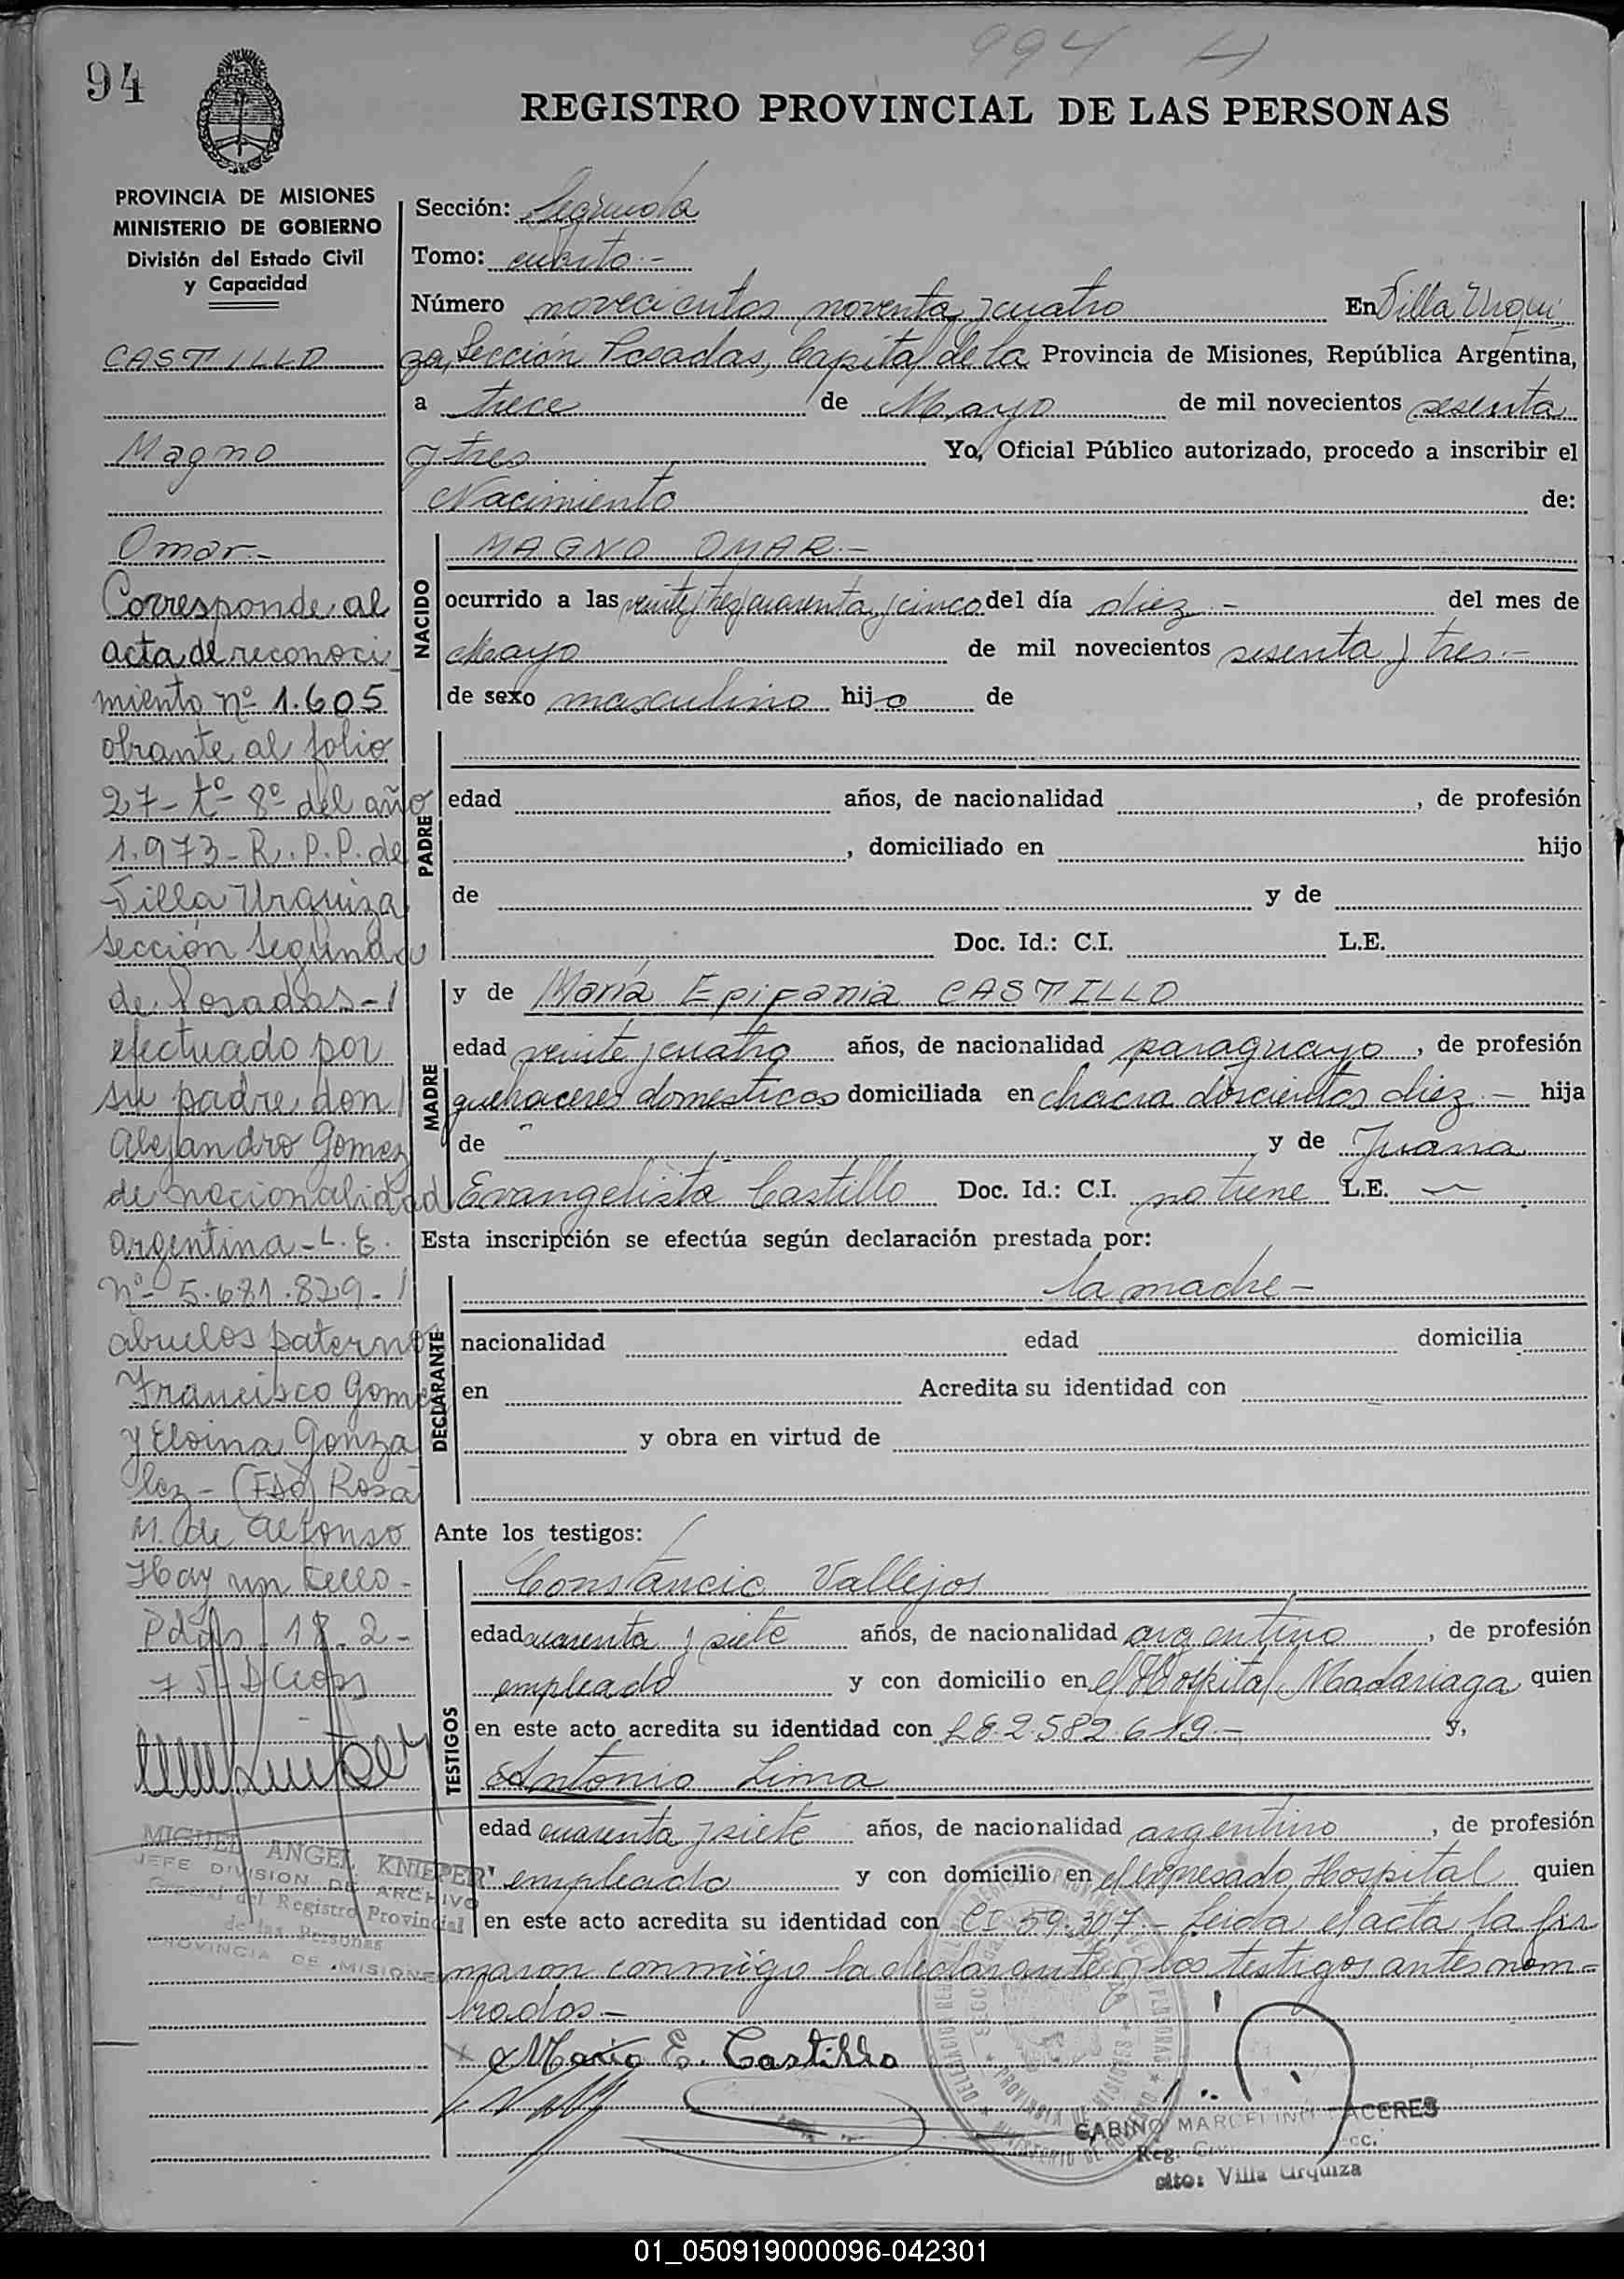 994 H
94
REGISTRO PROVINCIAL DE LAS PERSONAS
PROVINCIA DE MISIONES
MINISTERIO DE GOBIERNO
División del Estado Civil
y Capacidad
CASTILLO
Magno
Omar.-
Corresponde al
acta de reconoci
miento nº 1.605
obrante al folio
27- tº 8º del año
1.973- R.P.P. de
Villa Urquiza
sección segunda
de Posadas-
efectuado por
su padre don
Alejandro Gomez
de nacionalidad
argentina - L.E.
nº 5.681.829-
abuelos paternos
Francisco Gomez
y Eloina Gonza
lez - (Fdo) Rosa
M. de Alfonso
Hay un sello-
Pdas 18-2-
75-
MIGUEL ANGEL KNIEPER
JEFE DIVISION DE ARCHIVO
General del Registro Provincial
de las Personas
PROVINCIA DE MISIONES
Sección: Segunda
Tomo: cuarto.-
Número novecientos noventa y cuatro En Villa Urqui
za, Sección Posadas, Capital de la Provincia de Misiones, República Argentina,
a trece de Mayo de mil novecientos sesenta
y tres Yo, Oficial Público autorizado, procedo a inscribir el
Nacimiento de:
NACIDO
MAGNO OMAR.-
ocurrido a las veinte y tres y cuarenta y cinco del día diez.- del mes de
Mayo de mil novecientos sesenta y tres.-
de sexo masculino hijo de
PADRE
edad años, de nacionalidad , de profesión
, domiciliado en hijo
de y de
Doc. Id.: C.I. L.E.
MADRE
y de María Epifania CASTILLO
edad veinte y cuatro años, de nacionalidad paraguayo, de profesión
quehaceres domesticos domiciliada en chacra doscientos diez.- hija
de y de Juana
Evangelista Castillo Doc. Id.: C.I. no tiene L.E. -
Esta inscripción se efectúa según declaración prestada por:
DECLARANTE
la madre-
nacionalidad edad domicilia
en Acredita su identidad con
y obra en virtud de
Ante los testigos:
TESTIGOS
Constancio Vallejos
edad cuarenta y siete años, de nacionalidad argentino, de profesión
empleado y con domicilio en el Hospital Madariaga quien
en este acto acredita su identidad con LE.2.582.619.- y,
Antonio Lima
edad cuarenta y siete años, de nacionalidad argentino, de profesión
empleado y con domicilio en el expresado Hospital quien
en este acto acredita su identidad con CI 59.307.- Leida el acta la fir
maron conmigo la declarante y los testigos antes nom-
brados.-
x Maria E. Castillo
GABINO MARCELINO CACERES
Reg.
sito: Villa Urquiza
01_050919000096-042301